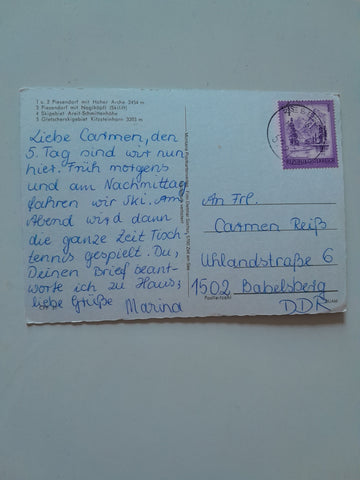 1 u. 3 Piesendorf mit Hoher Arche 2454 m
2 Piesendorf mit Naglköpfl (Skilift)
4 Skigebiet Areit-Schmittenhöhe
5 Gletscherskigebiet Kitzsteinhorn 3203 m
Liebe Carmen, den
5. Tag sind wir nun
hier. Früh morgens
und am Nachmittag
fahren wir Ski. Am
Abend wird dann
die ganze Zeit Tisch
tennis gespielt. Du,
Deinen Brief beant-
worte ich zu Haus,
liebe Grüße Marina
REPUBLIK ÖSTERREICH
An Frl.
Carmen Reiß
Uhlandstraße 6
1502 Babelsberg
Postleitzahl
DDR